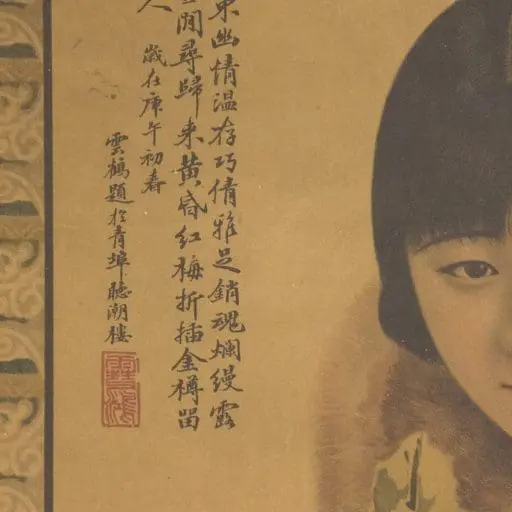 幽情温存巧倩雅足銷魂爛縵
閒尋歸来黄昏紅梅折插金樽留
人
歲在庚午初春
雲鶴題於青埠聽潮樓